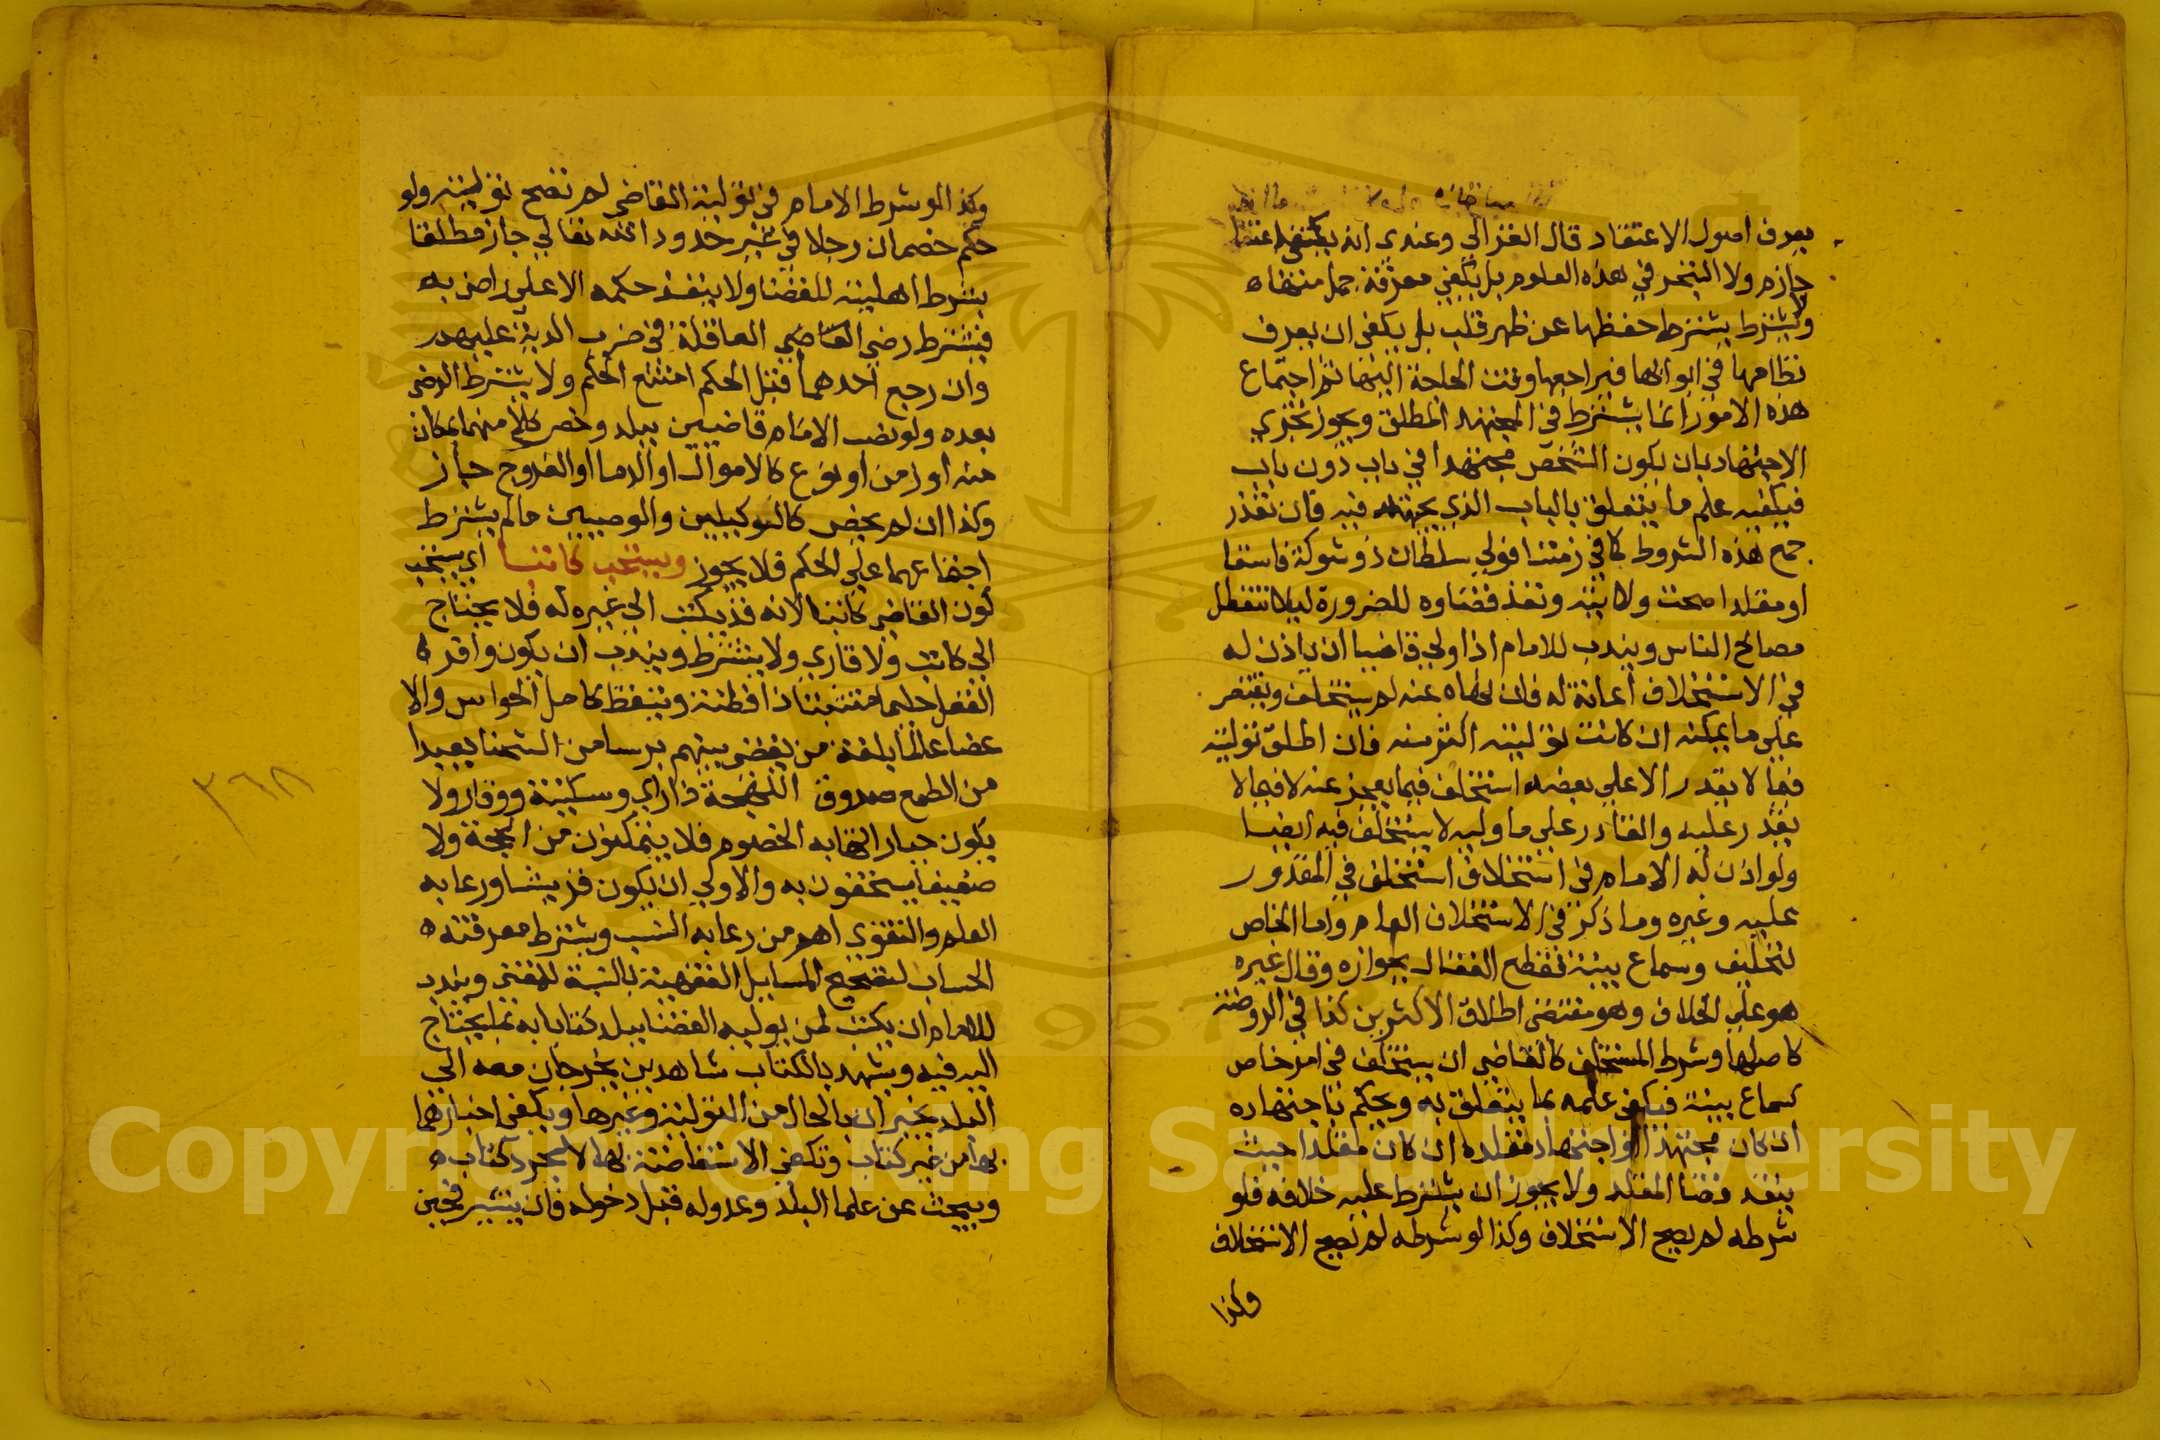 يعرف اصول الاعتقاد قال الغزالي وعندي انه يكتفي اعتقا
جازم ولا التبحر في هذه العلوم بل يكفي معرفة جمل منها ه
ولا يشترط حفظها عن ظهر قلب بل يكفي ان يعرف
نظامها في ابوابها فيراجعها وقت الحاجة اليها ثم اجتماع
هذه الامور انما يشترط في المجتهد المطلق ويجوز تجزي
الاجتهاد بان يكون الشخص مجتهدا في باب دون باب
فيكفيه علم ما يتعلق بالباب الذي يجتهد فيه فان تعذر
جمع هذه الشروط كما في زمننا فولي سلطان ذو شوكة فاسقا
او مقلدا صحت ولايته ونفذ قضاوه للضرورة ليلا تتعطل
مصالح الناس ويندب للامام اذا ولي قاضيا ان ياذن له
في الاستخلاف اعانة له فان نهاه عنه لم يستخلف ويقتصر
على ما يمكنه ان كانت توليته اكثر منه فان اطلق توليته
فيما لا يقدر الا على بعضه استخلف فيما يعجز عنه لا فيما لا
يقدر عليه والقادر على ما وليه لا يستخلف فيه ايضا
ولو اذن له الامام في استخلاف استخلف في المقدور
عليه وغيره وما ذكر في الاستخلاف العام واما الخاص
لتحليف وسماع بينة فقطع القفال بجوازه وقال غيره
هو على الخلاف وهو مقتضى اطلاق الاكثرين كذا في الروضة
كاصلها وشرط المستخلف كالقاضي ان يستخلف في امر خاص
كسماع بينة فيكفي علمه بما يتعلق به ويحكم باجتهاده
ان كان مجتهدا او اجتهاد مقلده ان كان مقلدا حيث
ينفذ قضا المقلد ولا يجوز ان يشترط عليه خلافه فلو
شرطه لم يصح الاستخلاف وكذا لو شرطه لم يصح الاستخلاف
وكذا
وكذا لو شرط الامام في تولية القاضي لم تصح توليته ولو
حكم خصمان رجلا في غير حدود الله تعالى جاز مطلقا
بشرط اهليته للقضا ولا ينفذ حكمه الا على راض به
فيشترط رضي القاضي العاقلة في ضرب الدية عليهم
وان رجع احدهما قبل الحكم امتنع الحكم ولا يشترط الرضى
بعده ولو نصب الامام قاضيين ببلد وخص كلا منهما بمكان
منه او زمن او نوع كالاموال او الدما او الفروج جاز
وكذا ان لم يخص كالوكيلين والوصيين ما لم يشترط
اجتماعهما على الحكم فلا يجوز ويستحب كاتبا اي يستحب
كون القاضي كاتبا لانه قد يكتب الى غيره له فلا يحتاج
الى كاتب ولا قاري ولا يشترط ويندب ان يكون وافر ه
العقل حليما متثبتا ذا فطنة وتيقظ كامل الحواس والا
عضا عالما بلغة من يقضي بينهم بريا من الشحنا بعيدا
من الطمع صدوق اللهجة ذا راي وسكينة ووقار ولا
يكون جبارا تهابه الخصوم فلا يتمكنون من الحجة ولا
ضعيفا يستخفون به والاولى ان يكون قرشيا ورعاية
العلم والتقوى اهم من رعاية النسب ويشترط معرفته ه
الحساب لتصحيح المسايل الفقهية بالنسبة للمفتي ويندب
للامام ان يكتب لمن يوليه القضا ببلد كتابا به بما يحتاج
اليه فيه ويشهد بالكتاب شاهدين يخرجان معه الى
البلد يخبران بالحال من التولية وغيرها ويكفي اخبارهما
بها من غير كتاب وتكفي الاستفاضة بها لا مجرد كتاب ه
ويبحث عن علما البلد وعدوله قبل دخوله فان تيسر فحين
٣٦٨
Copyright © King Saud University
1957